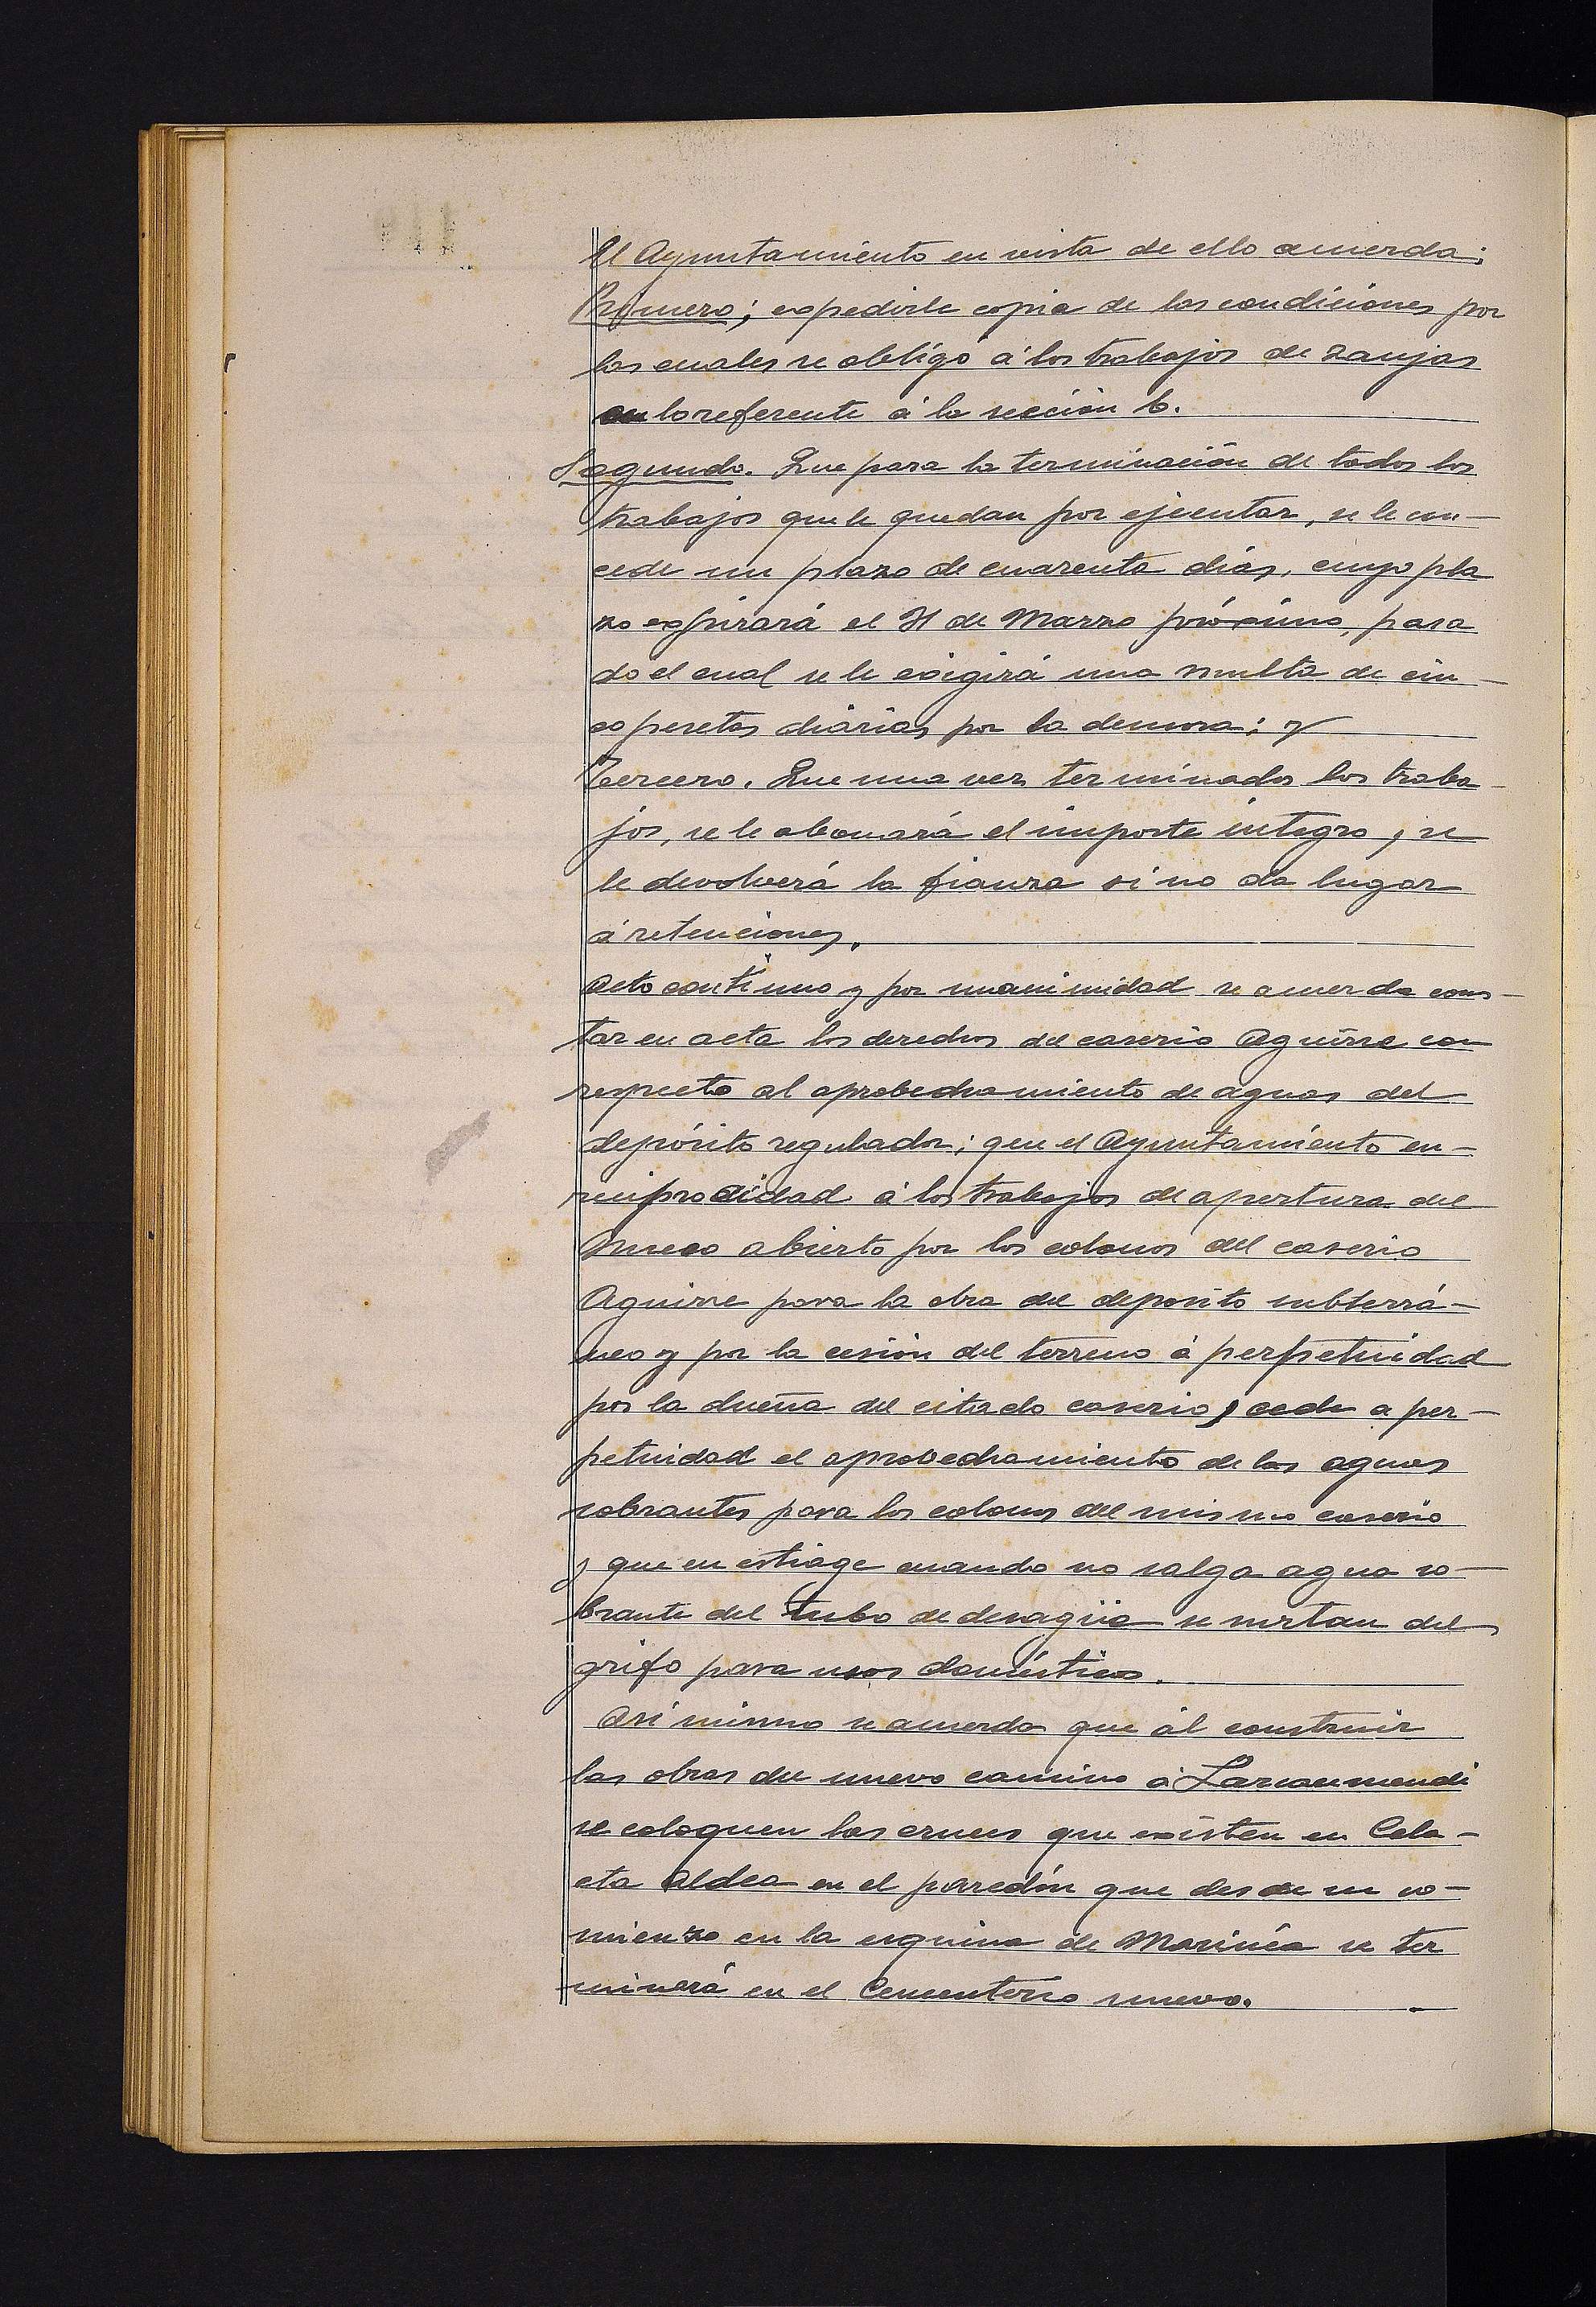 El Ayuntamiento en vista de ello acuerda;
Primero; expedirle copia de las condiciones por
las cuales se obligó á los trabajos de zanjas
en lo referente á la sección 6.
Segundo. Que para la terminación de todos los
trabajos que le quedan por ejecutar, se le con-
cede un plazo de cuarenta días, cuyo pla
zo expirará el 31 de Marzo próximo, pasa
do el cual se le exigirá una multa de cin-
co pesetas diarias por la demora; y
Tercero. Que una vez terminados los traba-
jos, se le abonará el importe integro, se
le devolverá la fianza si no da lugar
á retenciones.
Acto contínuo y por unanimidad se acuerda cons-
tar en acta los derechos del caserio Aguirre con
respecto al aprobechamiento de aguas del
depósito regulador; que el Ayuntamiento en-
reciprocidad á los trabajos de apertura del
hueco abierto por los colonos del caserio
Aguirre para la obra del deposito subterrá-
neo y por la cesión del terreno á perpetuidad
por la dueña del citado caserio, cede a per-
petuidad el aprovechamiento de las aguas
sobrantes para los colonos del mismo caserio
y que en estiage cuando no salga agua so-
brante del tubo de desagüe se surtan del
grifo para usos domésticos.
Asi mismo se acuerda que ál construir
las obras del nuevo camino á Larraumendi
se coloquen las cruces que existen en Cela-
eta Aldea en el paredón que desde su co-
mienzo en la esquina de Marinéa se ter
minará en el Cementerio nuevo.